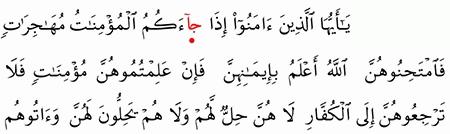 يَـٰٓأَيُّهَا ٱلَّذِينَ ءَامَنُوٓا۟ إِذَا جَآءَكُمُ ٱلْمُؤْمِنَـٰتُ مُهَـٰجِرَٰتٍ
فَٱمْتَحِنُوهُنَّ ٱللَّهُ أَعْلَمُ بِإِيمَـٰنِهِنَّ فَإِنْ عَلِمْتُمُوهُنَّ مُؤْمِنَـٰتٍ فَلَا
تَرْجِعُوهُنَّ إِلَى ٱلْكُفَّارِ لَا هُنَّ حِلٌّ لَّهُمْ وَلَا هُمْ يَحِلُّونَ لَهُنَّ وَءَاتُوهُم